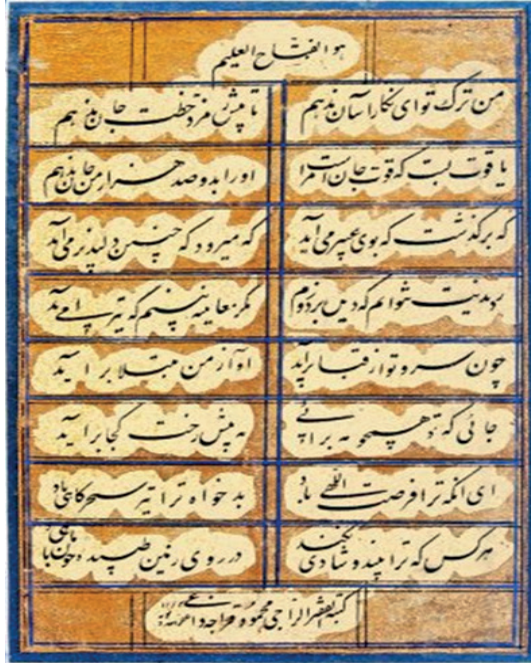 هو الفتاح العلیم
من ترک تو ای نگار آسان ندهم
تا پیش مزد خطت جان ندهم
یاقوت لبت که قوت جان است مرا
او را بدو صد هزار مرجان ندهم
که برگذشت که بوی عبیر می آید
که میرود که چنین دلپذیر می آید
نیم که تیر
چون سرو تو از قبا برآید
آواز من مبتلا برآید
جائی که تو همچو مه برائی
مه پیش رخت کجا برآید
ای آنکه ترا فرصت اللهی باد
بدخواه ترا تیر سحرگاهی باد
هر کس که ترا بیند و شادی نکند
در روی زمین طپیده چون ماهی باد
کتبه الفقیر الراجی محمود